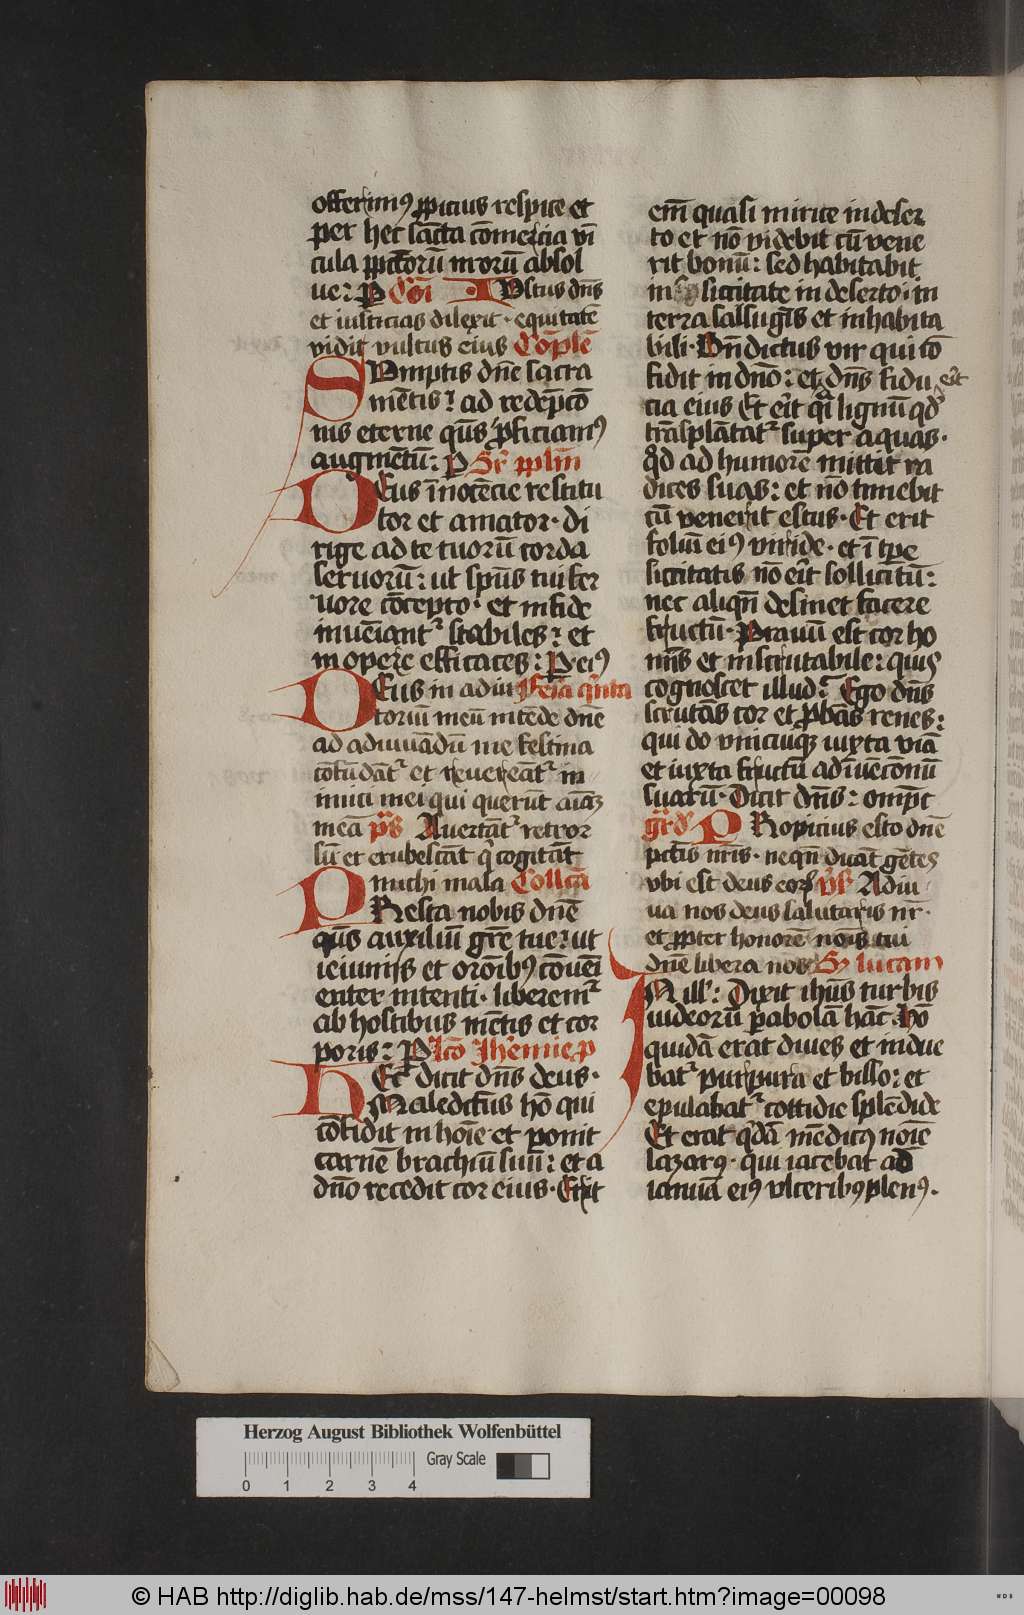 offerim⁹ ꝓpicius respice et
per hec sācta cōmercia vī
cula ꝓpctōrū nrorū absol
ue: P Cōi Iustus dn̄s
et iusticias dilexit · equitatē
vidit vultus eius Cōplē
SVmptis dn̄e sacra
mētis: ad redēpcō
nis eterne qūs ꝓficiam⁹
augmētū: P Sr̄ pplm̄
DEus īnocēcie restitu
tor et amator · di
rige ad te tuorū corda
seruorū: ut spūs tui fer
uore cōcepto · et in fide
inueniant᷑ stabiles: et
in opere efficaces: P ei⁹
DEus in adiu Feīa qīnta
toriū meū intēde dn̄e
ad adiuuādū me festina
cōfūdāt᷑ et reuereāt᷑ in
imici mei qui querūt aīaꝫ
meā p̄s Auertāt᷑ retror
sū et erubescāt q̄ cogitāt
michi mala Collcā
PResta nobis dn̄e
qūs auxiliū grē tue: ut
ieiuniis et orōib⁹ cōueni
enter intenti · liberem᷑
ab hostibus mētis et cor
poris: P Lc̄o Jheremie p
HEc dicit dn̄s deus ·
Maledictus hō qui
cōfidit in hoīe et ponit
carnē brachiū suū: et a
dn̄o recedit cor eius · Erit
em̄ quasi mirice in deser
to et nō videbit cū vene
rit bonū: sed habitabit
in siccitate in deserto · in
terra salsugīs et inhabita
bili · Bn̄dictus vir qui cō
fidit in dn̄o: et dn̄s fidu erit
cia eius Et eīt q̄i lignū qd̄
trāsplātat᷑ super aquas ·
qd̄ ad humorē mittit ra
dices suas: et nō timebit
cū venerit estus · Et erit
foliū ei⁹ viride · et ī tp̄e
siccitatis nō eīt sollicitū:
nec aliqn̄ desinet facere
fructū · Prauū est cor ho
mīs et inscrutabile: quis
cognoscet illud: Ego dn̄s
scrutās cor et ꝓbās renes:
qui do vnicuiqꝫ iuxta viā
et iuxta fructū adiuēcōnū
suarū · Dicit dn̄s: omp̄t
Grd̄ PRopicius esto dn̄e
pctīs nrīs · neqn̄ dicāt gētes
vbi est deus eorꝫ v̄s Adiu
ua nos deus salutaris nr̄ ·
et ꝓpter honorē nois tui
dn̄e libera nos Sꝫ lucam
IN ill᷑: Dixit ihūs turbis
iudeorū ꝑabolā hāc Hō
quidā erat diues et indue
bat᷑ purpura et bisso: et
epulabat᷑ cottidie splēdide
Et erat qdā mēdic⁹ noīe
lazar⁹ · qui iacebat ad
ianuā ei⁹ vlcerib⁹ plen⁹ ·
Herzog August Bibliothek Wolfenbüttel
Gray Scale
0 1 2 3 4
© HAB http://diglib.hab.de/mss/147-helmst/start.htm?image=00098